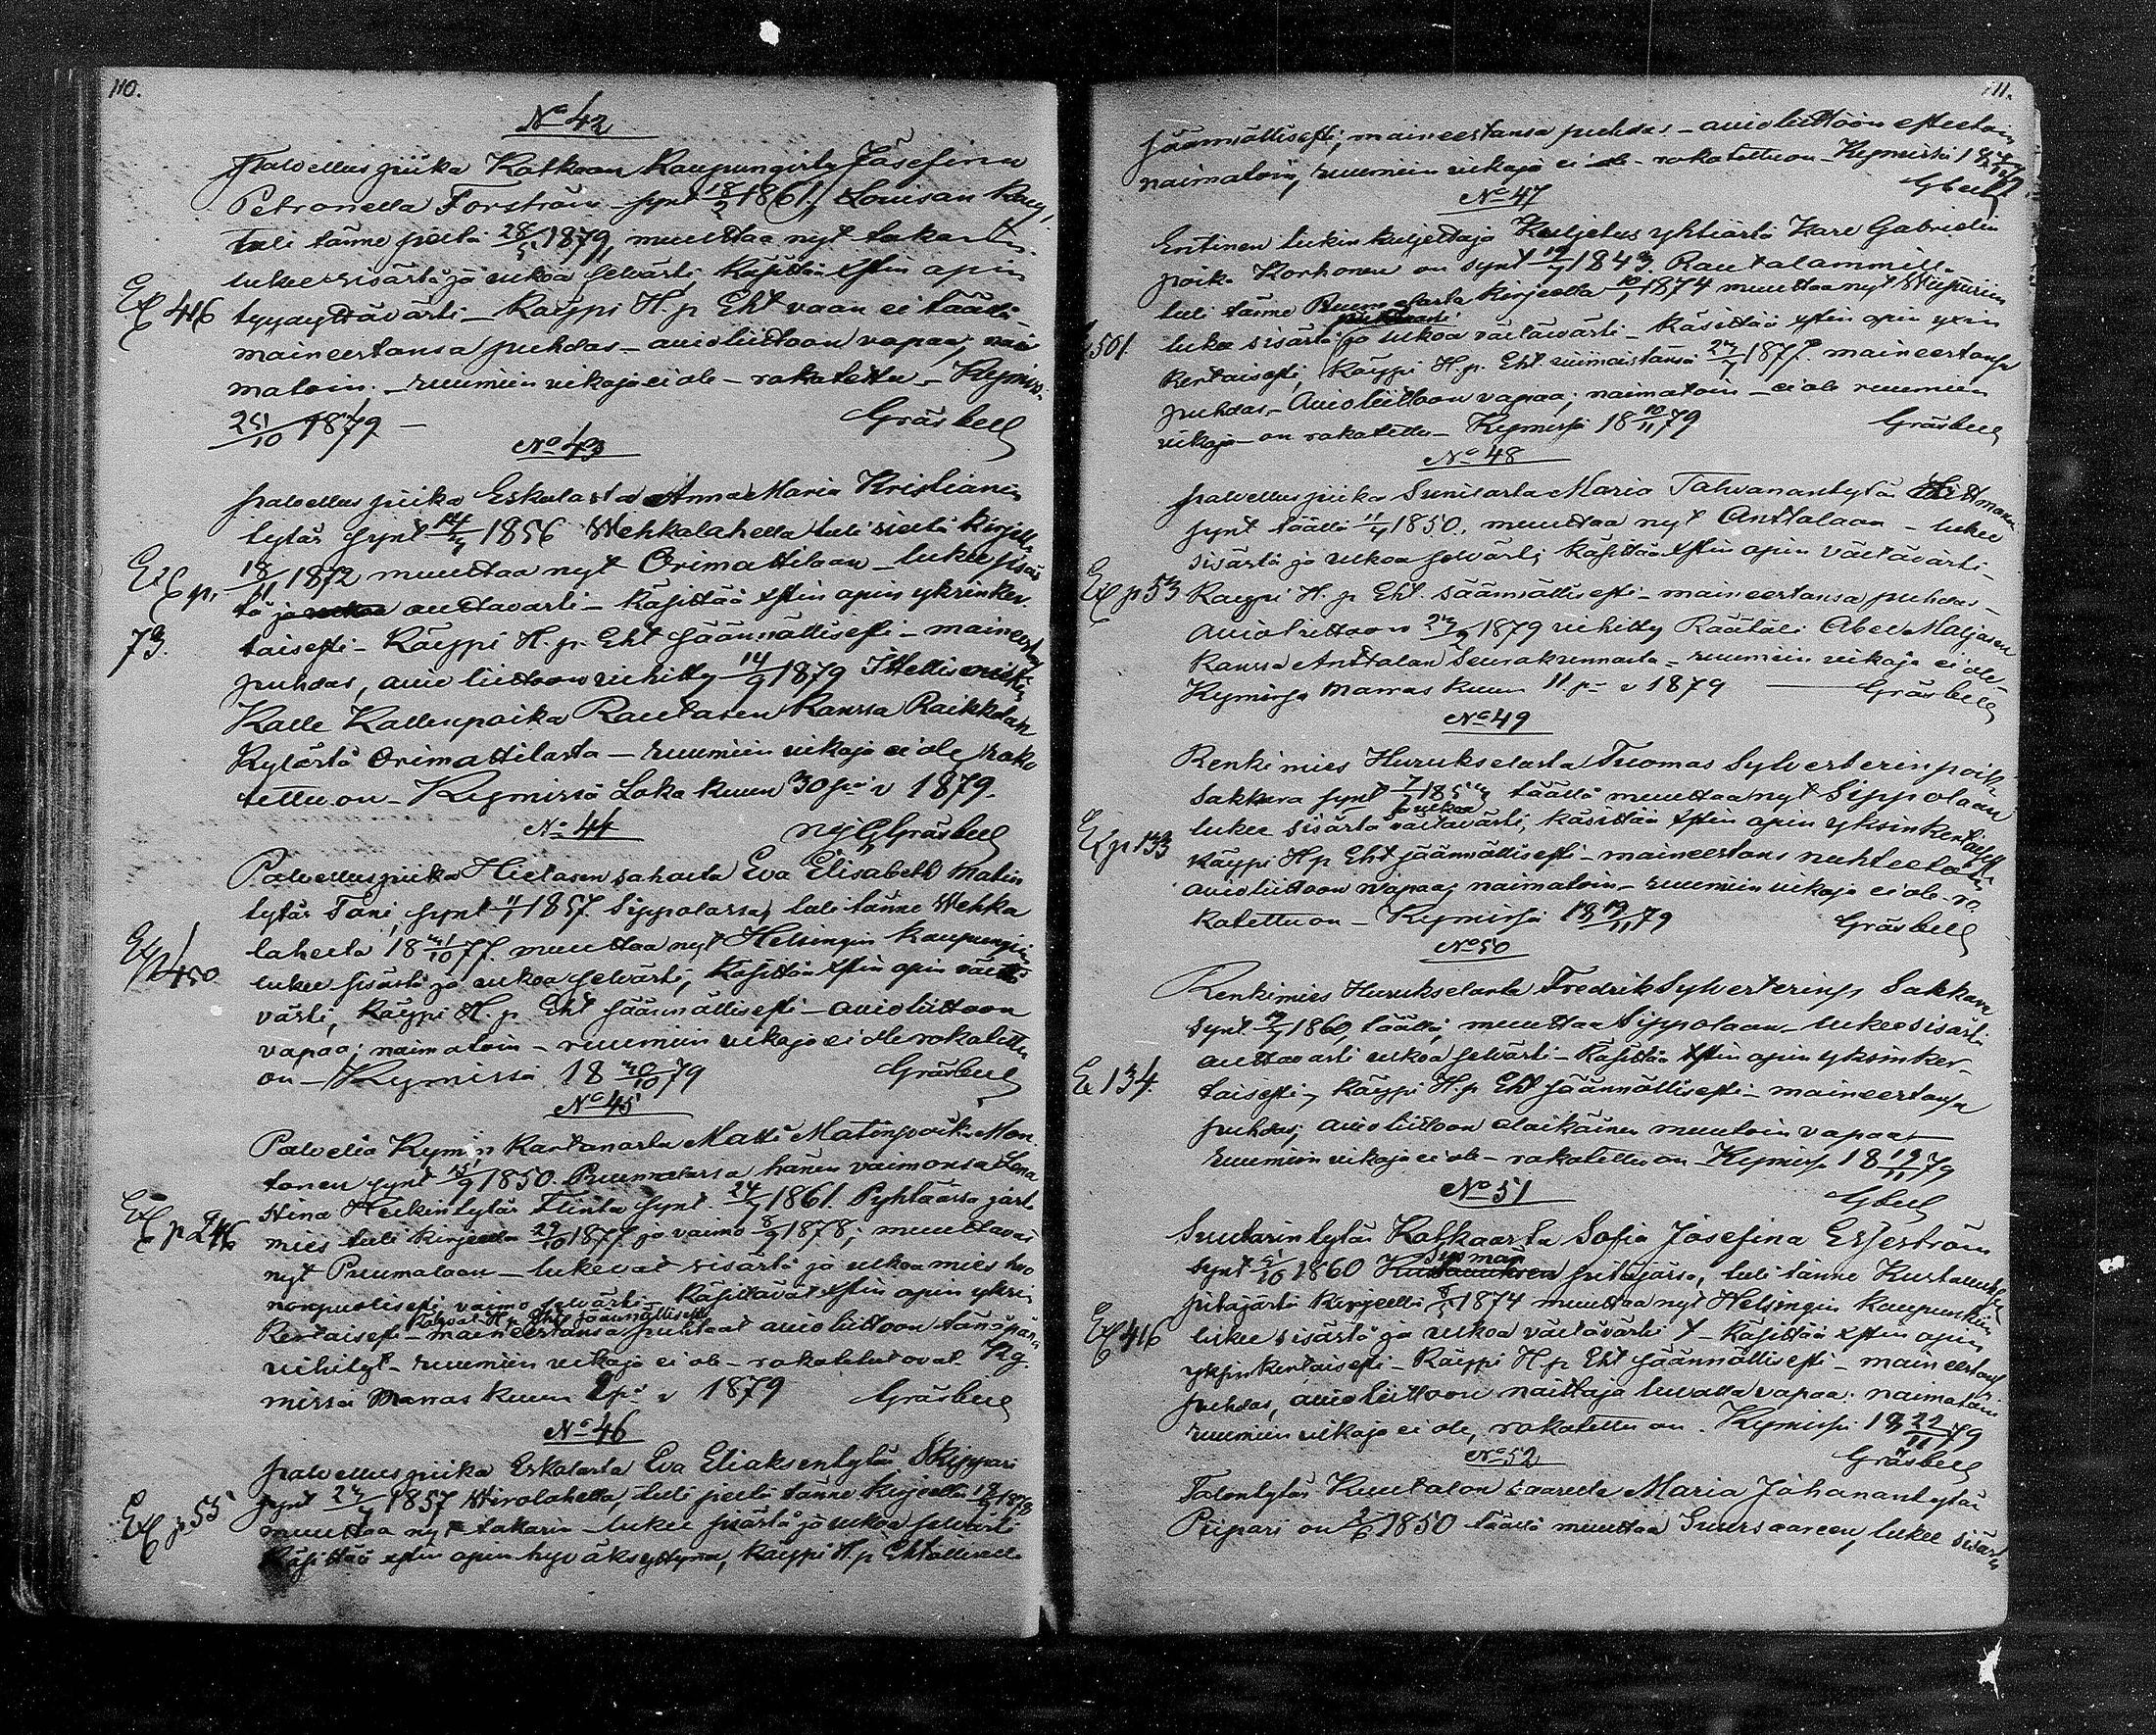 110.
No 42
Palvelluspiika Kotkoan Kaupungista Josefina
Petronella Forström synt 18/2 1861, Lovisan Kaup,
tuli tänne sieltä 28/5 1879, muuttaa nyt takasin.
lukee sisästä ja ulkoa selvästi, käsittää xstin opin
Ex 416 tyydyttävästi – käypi H. p. Eht vaan ei täällä –
maineestansa puhdas – avioliittoon vapaa, nai
matoin. – ruumiin vikaja ei ole – rokotettu – Kymissä
25/10 1879 – Gräsbeck
No 43
palvellus piika Eskolasta Anna Maria Kristianin
tytär synt 14/4 1856 Wehkalahella tuli sieltä kirjella
Ex p. 18/11 1872 muuttaa nyt Orimattilaan – lukee sisäs
tä ja ulkoa auttavasti – käsittää xstin opin yksinker-
73. taisesti – Käypi H. p. Eht säännöllisesti – maineestansa
puhdas, avio liittoon vihitty 14/9 1879 Itellismiehen
Kalle Kallenpoika Rautasen kanssa Raikkolan
kylästä Orimattilasta – ruumiin vikaja ei ole, roko
tettu on – Kymissä Loka kuun 30 pä v 1879.
No 44 Gräsbeck
Palvelluspiika Hietasen sahalta Eva Elisabeth Matin
tytär Toni, synt 4/1 1857. Sippolassa, tuli tänne Wehka
lahelta 18 31/10 77. muuttaa nyt Helsingin kaupungiin
Ex p 450 lukee sisästä ja ulkoa selvästi, käsittää xstin opin vältä
västi, käypi H. p. Eht säännöllisesti – avioliittoon
vapaa; naimatoin – ruumiin vikaja ei ole rokotettu
on – Kymissä 18 30/10 79 Gräsbeck
No 45
Palvelia Kymin Kartanosta Matti Matinpoika Mon
tonen synt 15/9 1850. Puumalassa hänen vaimonsa Lena
Stina Heikintytär Flinta synt. 24/7 1861. Pyhtäässä josta
Ex p 246 mies tuli kirjeella 29/10 1877 ja vaimo 8/9 1878; muuttavat
nyt Puumalaan – lukevat sisästä ja ulkoa mies huo
nonpuolisesti vaimo selvästi – käsittävät xstin opin yksin
käyvät H. p. Eht säännöllisesti
kertaisesti – maineestansa puhtaat avioliittoon tänäpänä
vihityt – ruumiin vikaja ei ole – rokotetut ovat. Ky-
missä Marras kuun 2 pä v 1879 Gräsbeck
No 46
palvellus piika Eskolasta Eva Eliaksentytär Skippari
Ex p 55 synt 23/7 1857 Wirolahella, tuli sieltä tänne kirjeella
muuttaa nyt takasin – lukee sisästä ja ulkoa selvästi
käsittää xstin opin hyväksyttynä, käypi H. p Ehtollisella
111.
säännöllisesti, maineestansa puhdas – avioliittoon esteetoin
naimatoin, ruumiin vikaja ei ole – rokotettu on – Kymissä
No 47 Gbeck
Entinen tukin kuljettaja Kuljetus yhtiöstä Kare Gabrielin
poik. Korhonen on synt 19/7 1843. Rautalammilla
tuli tänne Ruumalasta kirjeella 10/1 1874 muuttaa nyt Wiipuriin
501. lukee sisästä ja ulkoa vältävästi – käsittää xstin opin yxin
kertaisesti, käypi H. p. Eht. viimeistänsä 23/7 1877. maineestansa
puhdas – Avioliittoon vapaa; naimatoin – ei ole ruumiin
vikaja – on rokotettu – Kymissä 18 10/11 79 Gräsbeck
No 48
palvellus piika Sunilasta Maria Tahvanantytär
synt täällä 11/4 1850. muuttaa nyt Anttolaan – lukee
sisästä ja ulkoa selvästi, käsittää xstin opin vältävästi –
Ex p 53 Käypi H. p Eht. säännöllisesti – maineestansa puhdas –
Avioliittoon 23/9 1879 vihitty Räätäli Abel Maljasen
kanssa Anttolan Seurakunnasta – ruumiin vikaja ei ole –
Kymissä Marras kuun 11. pä v 1879 — Gräsbeck
No 49
Renki mies Hurukselasta Tuomas Sylvesterin poik
Sakkara synt täällä muuttaa nyt Sippolaan
ja ulkoa
lukee sisästä vältävästi, käsittää xstin opin yksinkertaisesti
Ex p 133 Käypi H p Eht säännöllisesti – maineestans nuhteetoin
avioliittoon vapaa; naimatoin – ruumiin vikaja ei ole – ro
kotettu on – Kymissä 18 19/11 79 Gräsbeck
No 50
Renkimies Hurukselasta Fredrik Sylvesterinp Sakkara
synt 1860, täällä, muuttaa Sippolaan – lukee sisästä
auttavasti ulkoa selvästi – käsittää xstin opin yksinker-
Ex 134. taisesti, käypi H. p Eht säännöllisesti – maineestansa
puhdas, avioliittoon alaikäinen muutoin vapaa –
ruumiin vikaja ei ole – rokotettu on – Kymissä 18 19/11 79
No 51 Gbeck
Suutarintytär Kotkaasta Sofia Josefina Ersteström
Sysmän
synt 5/10 1860 pitäjässä, tuli tänne Kustaankse
pitäjästä kirjeella 1874 muuttaa nyt Helsingin Kaupunkiin
Ex 416 lukee sisästä ja ulkoa vältävästi – käsittää xstin opin
yksinkertaisesti – Käypi H. p Eht säännöllisesti – maineestans
puhdas, avioliittoon naittaja luvalla vapaa: naimatoin
ruumiin vikaja ei ole, rokotettu on. Kymissä 18 22/11 79
No 52 Gräsbeck
Talontytär Kuutalon saarelta Maria Johanantytär
Pripari on 2/6 1850 täällä muuttaa Suursaareen, lukee sisästä